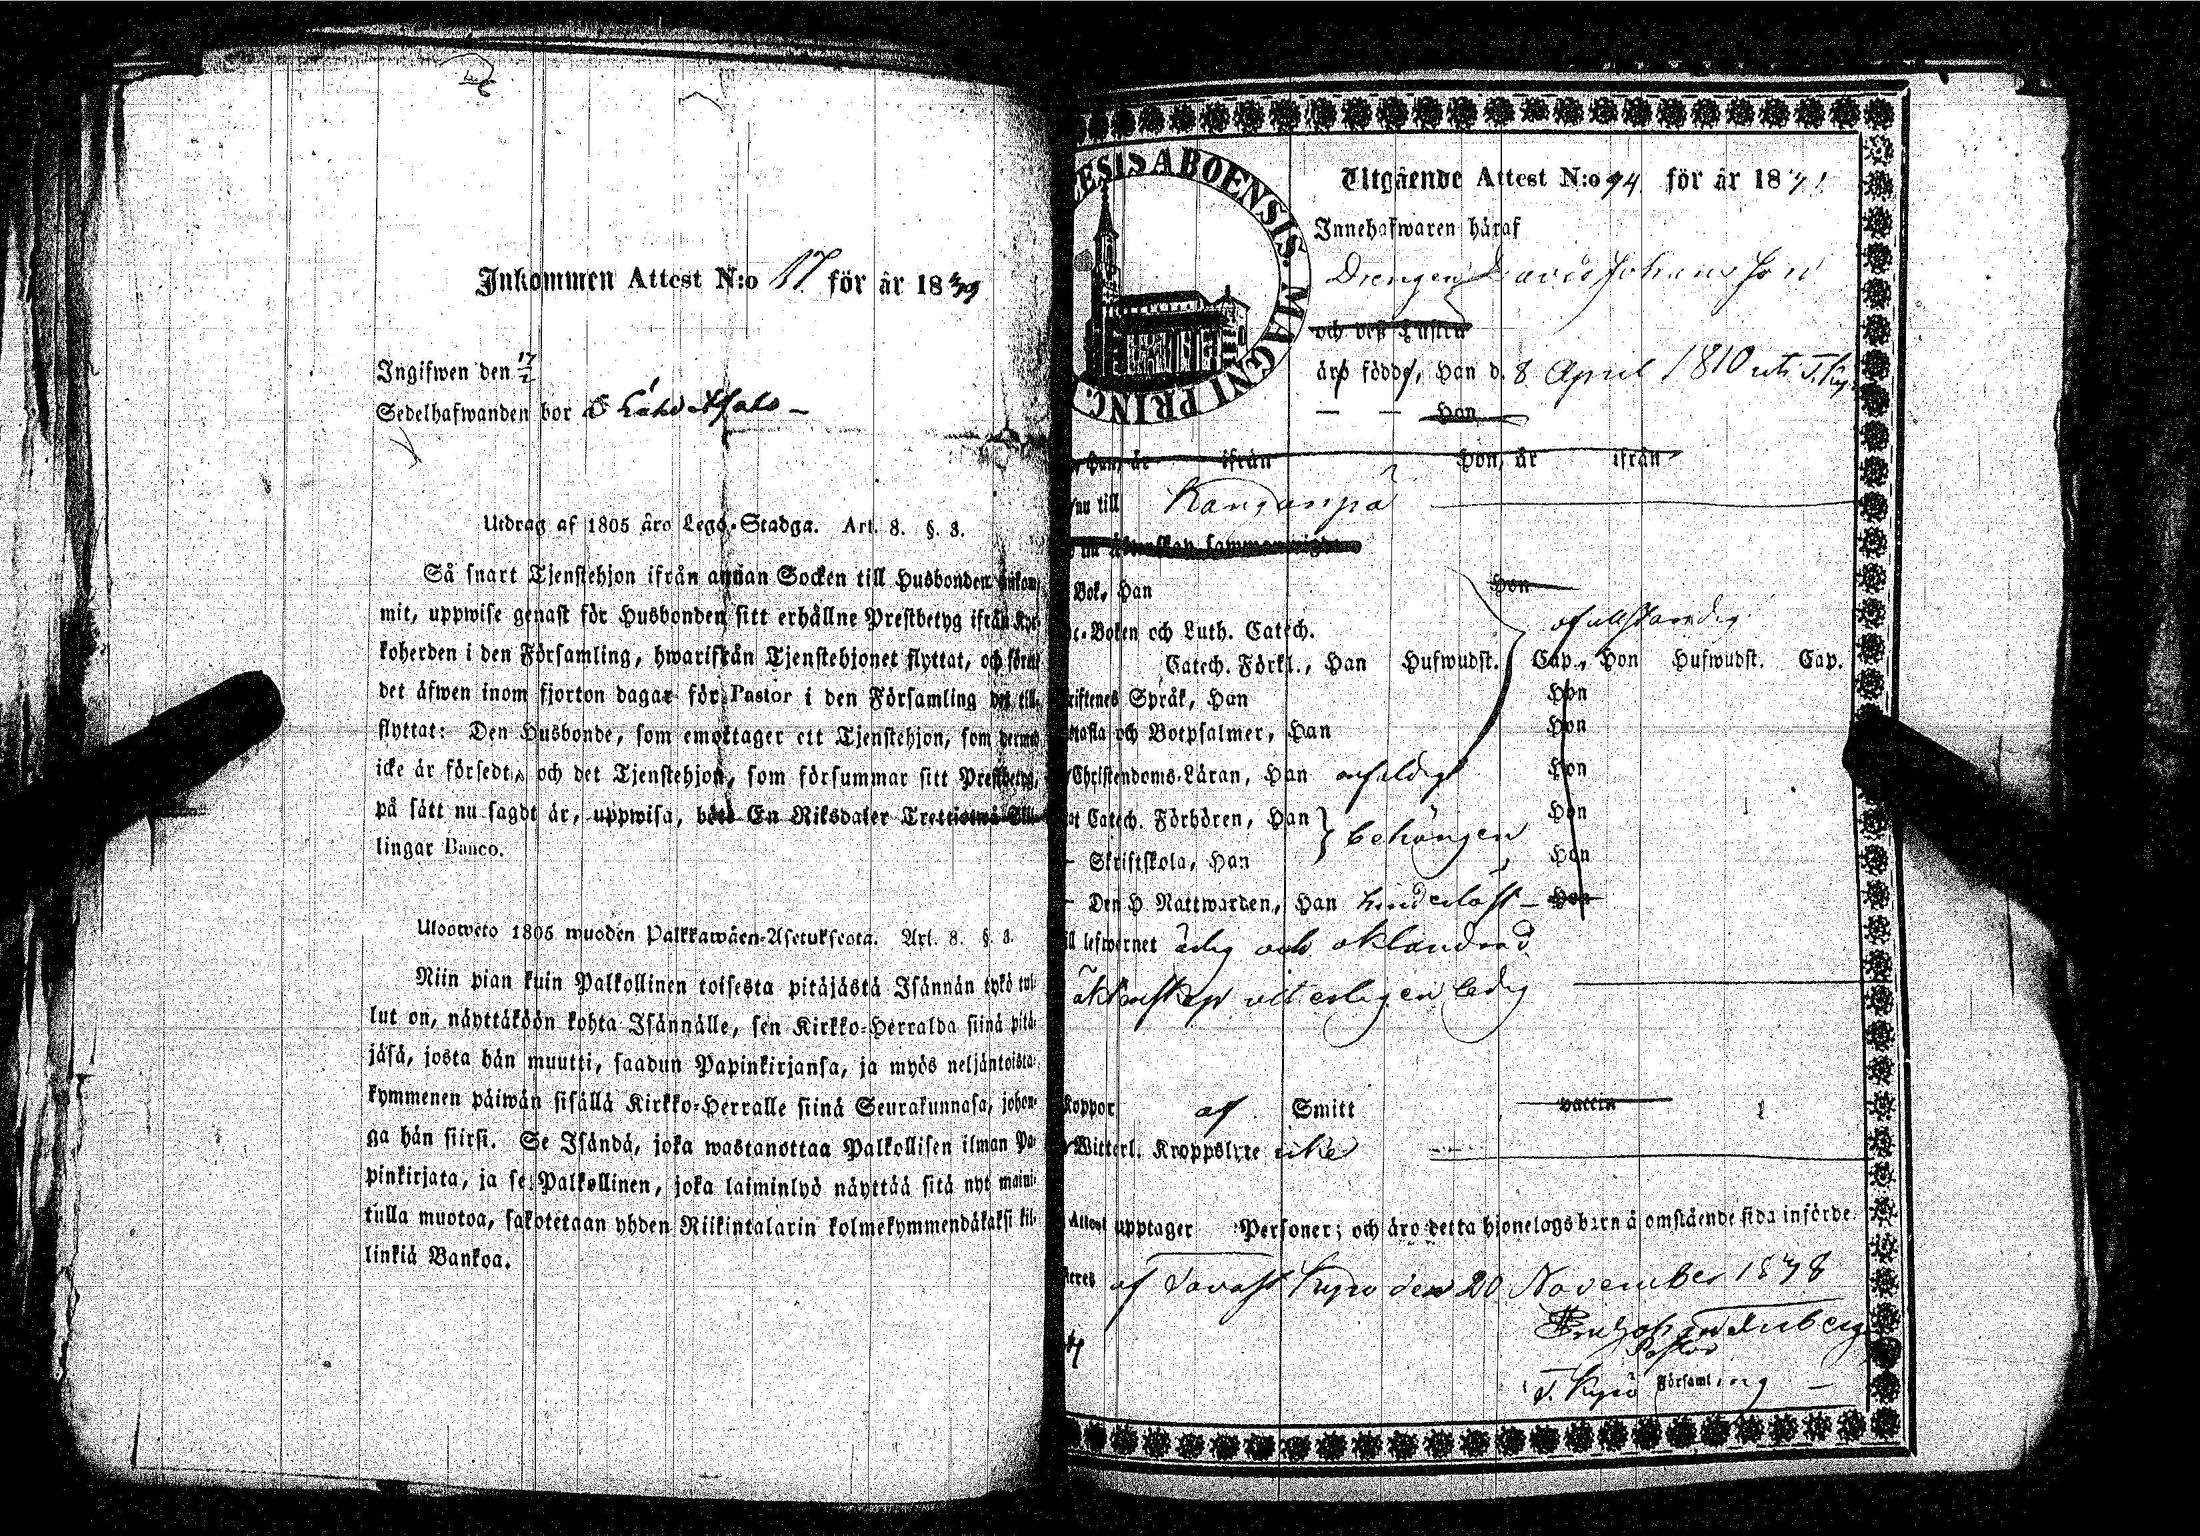 Inkommen Attest N:o 17 för år 1839
Ingifwen den 17/2
Sedelhafwanden bor å
Utdrag af 1805 års Lego-Stadga. Art. 8. §. 3.
Så snart Tjenstehjon ifrån annan Socken till Husbonden ankom-
mit, uppwise genast för Husbonden sitt erhållne Prestbetyg ifrån Kyr-
koherden i den Församling, hwarifrån Tjenstehjonet flyttat, och förete
det äfwen inom fjorton dagar för Pastor i den Församling det till-
flyttat: Den Husbonde, som emottager ett Tjenstehjon, som dermed
icke är försedt, och det Tjenstehjon, som försummar sitt Prestbetyg,
på sätt nu sagdt är, uppwisa, böte En Riksdaler Trettiotwå Skil-
lingar Banco.
Ulosweto 1805 wuoden Palkkawäen-Asetuksesta. Art. 8. §. 3.
Niin pian kuin Palkollinen toisesta pitäjästä Isännän tykö tul-
lut on, näyttäköön kohta Isännälle, sen Kirkko-Herralda siinä pitä-
jäsä, josta hän muutti, saadun Papinkirjansa, ja myös neljäntoista-
kymmenen päiwän sisällä Kirkko-Herralle siinä Seurakunnasa, johon-
ga hän siirsi. Se Isändä, joka wastanottaa Palkollisen ilman Pa-
pinkirjata, ja se Palkollinen, joka laiminlyö näyttää sitä nyt maini-
tulla muotoa, sakotetaan yhden Riikintalarin kolmekymmendäkaksi kil-
linkiä Bankoa.
ESIS ABOENSIS. MAGNI PRINC.
Utgående Attest N:o 94 för år 18
Innehafwaren häraf
Drengen David Johansson
och deß Hustru
äro födde, Han d. 8 April 1810 uti T. Kyro
Hon
Han, är ifrån Hon, är ifrån
nu till Kanganpä
nu Äktenskap sammanwigde
Bok, Han Hon
Boken och Luth. Catech. ofullständig
Catech. Förkl., Han Hufwudst. Cap., Hon Hufwudst. Cap.
riftenes Språk, Han Hon
och Botpsalmer, Han Hon
Christendoms-Läran, Han enfaldigt Hon
Catech. Förhören, Han behörigen Hon
Skriftskola, Han Hon
Den H Nattwarden, Han hinderlöst Hon
lefwernet ärlig och oklandrad
Äktenskap witterligen ledig
Koppor af Smitt vaccin
Witterl. Kroppslyte icke
Attest upptager Personer; och äro detta hjonelags barn å omstående sida införde.
af Tavast Kyro den 20 November 1838
Pastor
T. Kyro Församling